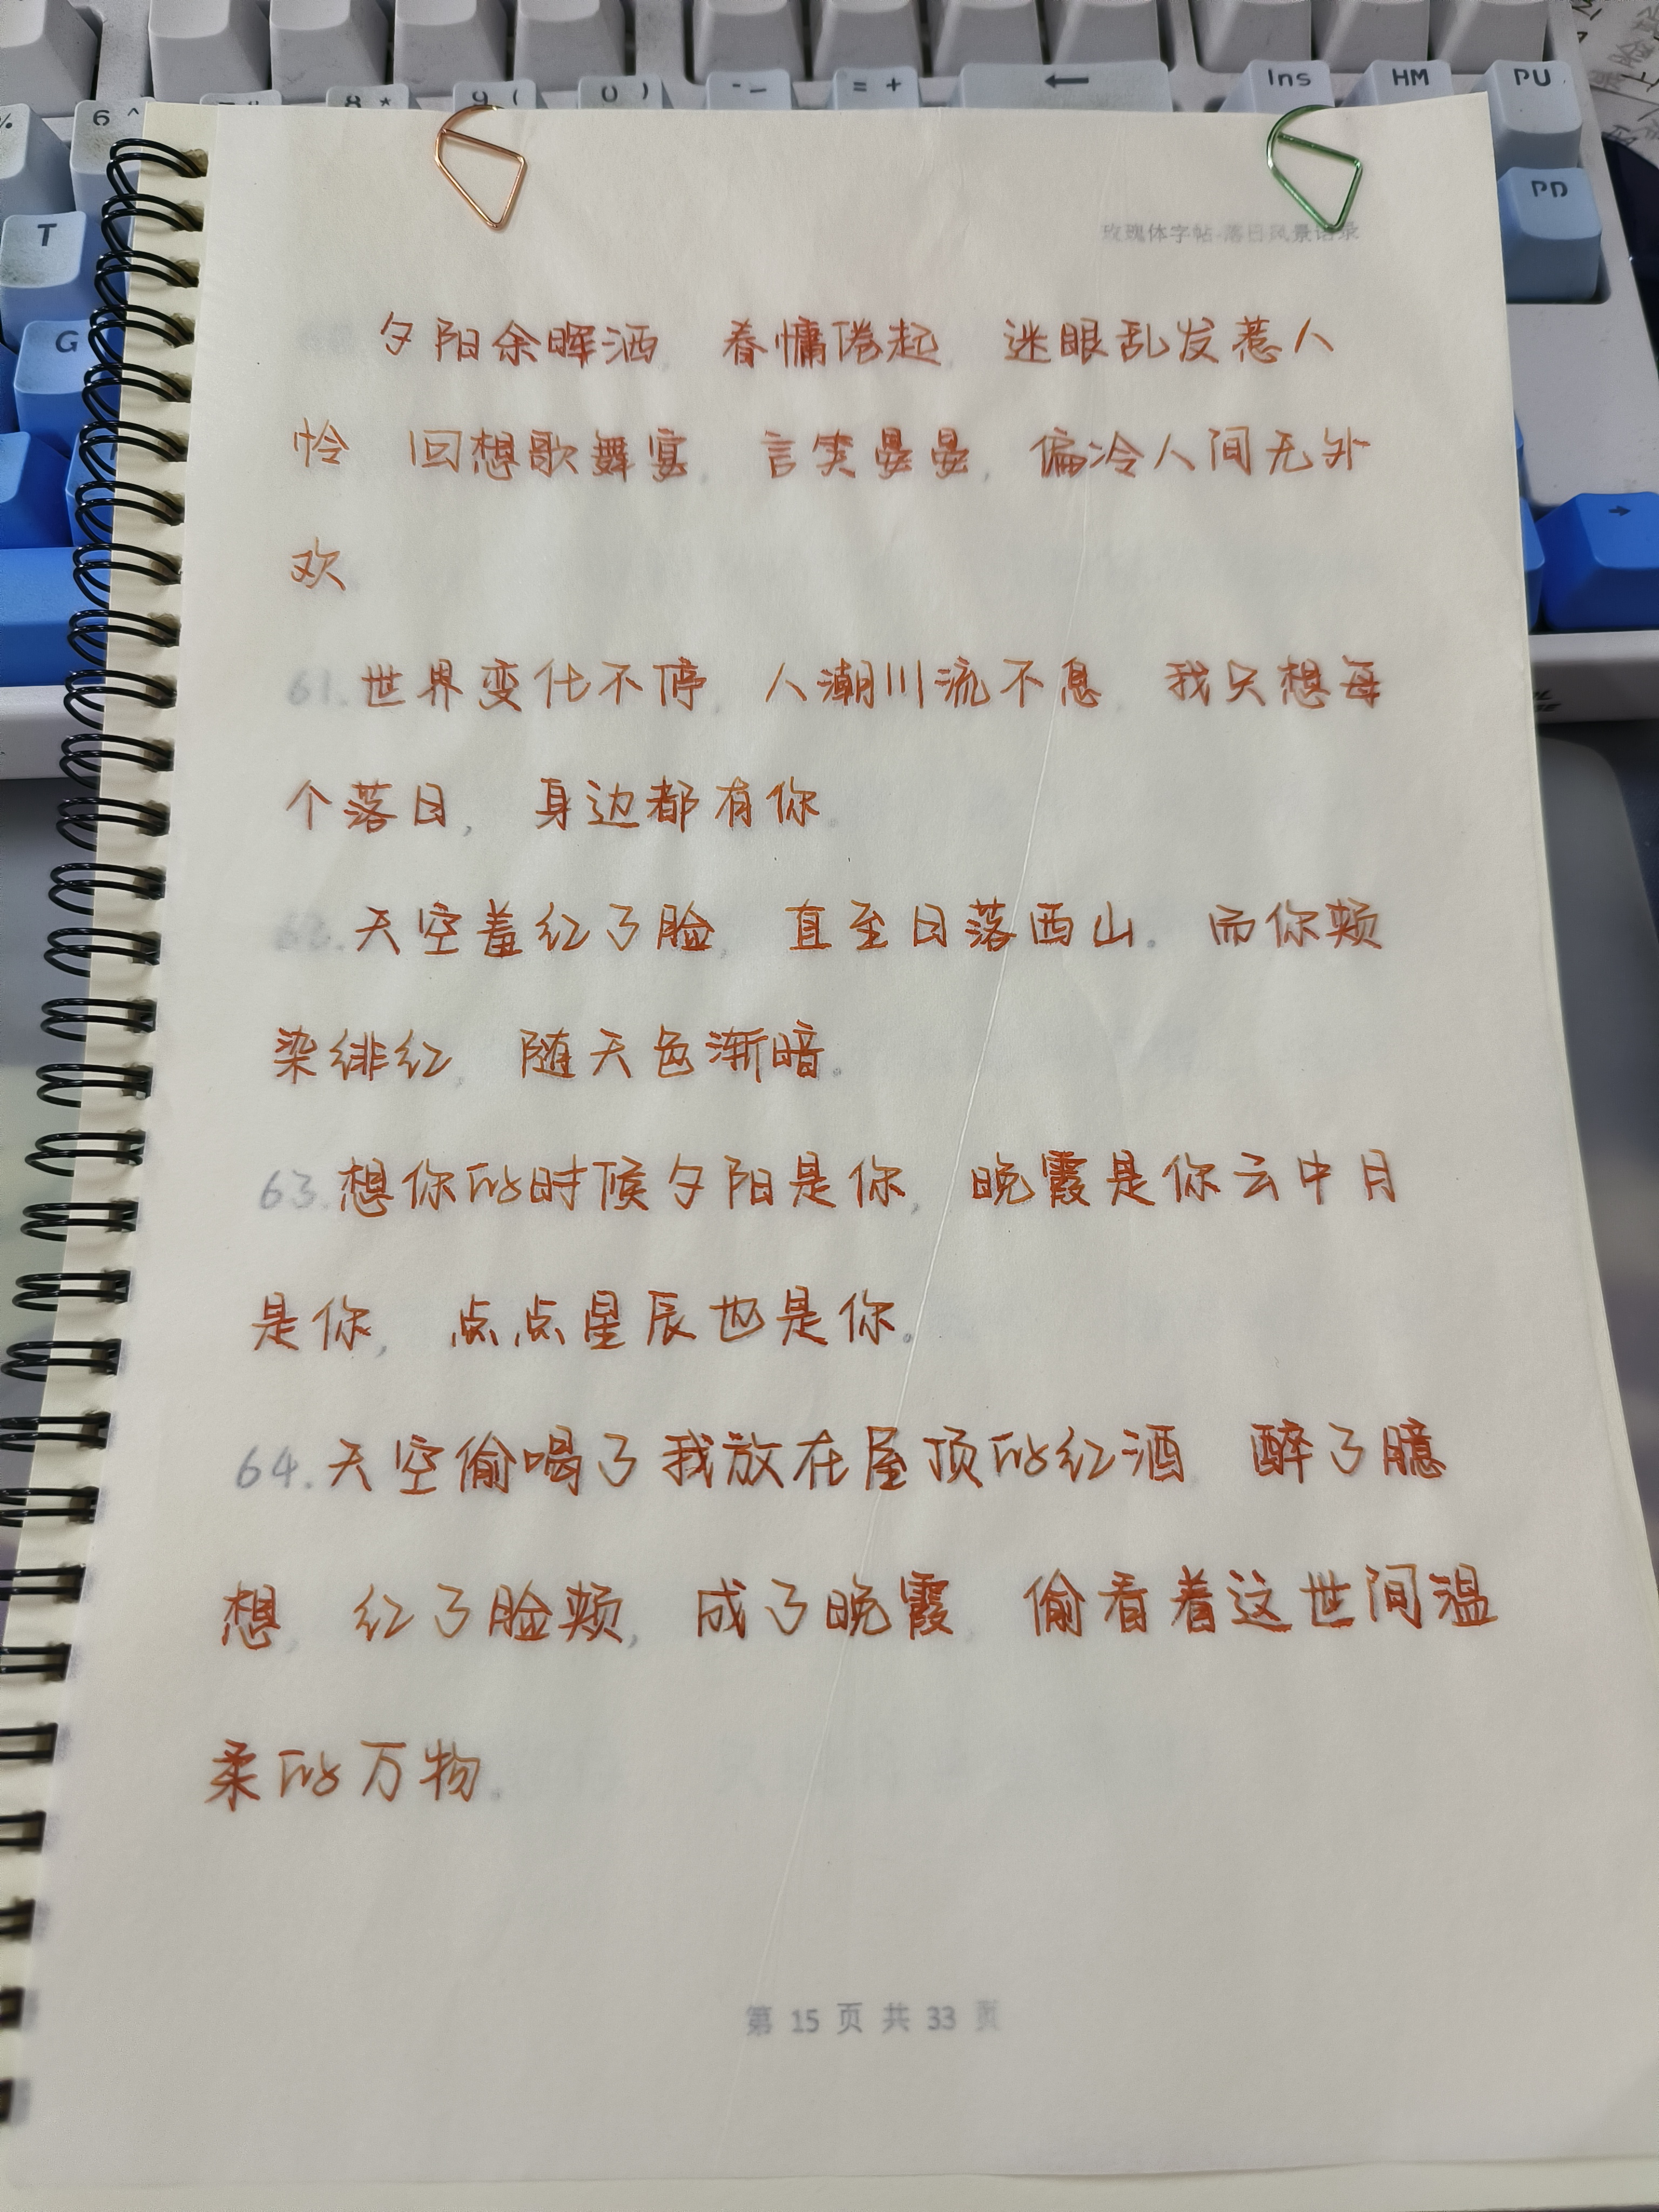 Ins HM PU
6 ^ 8 * 9 ( 0 ) - _ = + ←
T PD
G
→
玫瑰体字帖 落日风景语录
夕阳余晖洒, 春慵倦起, 迷眼乱发惹人
怜 回想歌舞宴, 言笑晏晏, 偏冷人间无外
欢
61. 世界变化不停, 人潮川流不息, 我只想每
个落日, 身边都有你。
62. 天空羞红了脸, 直至日落西山。而你颊
染绯红, 随天色渐暗。
63. 想你的时候夕阳是你, 晚霞是你云中月
是你, 点点星辰也是你。
64. 天空偷喝了我放在屋顶的红酒, 醉了臆
想, 红了脸颊, 成了晚霞, 偷看着这世间温
柔的万物。
第 15 页 共 33 页